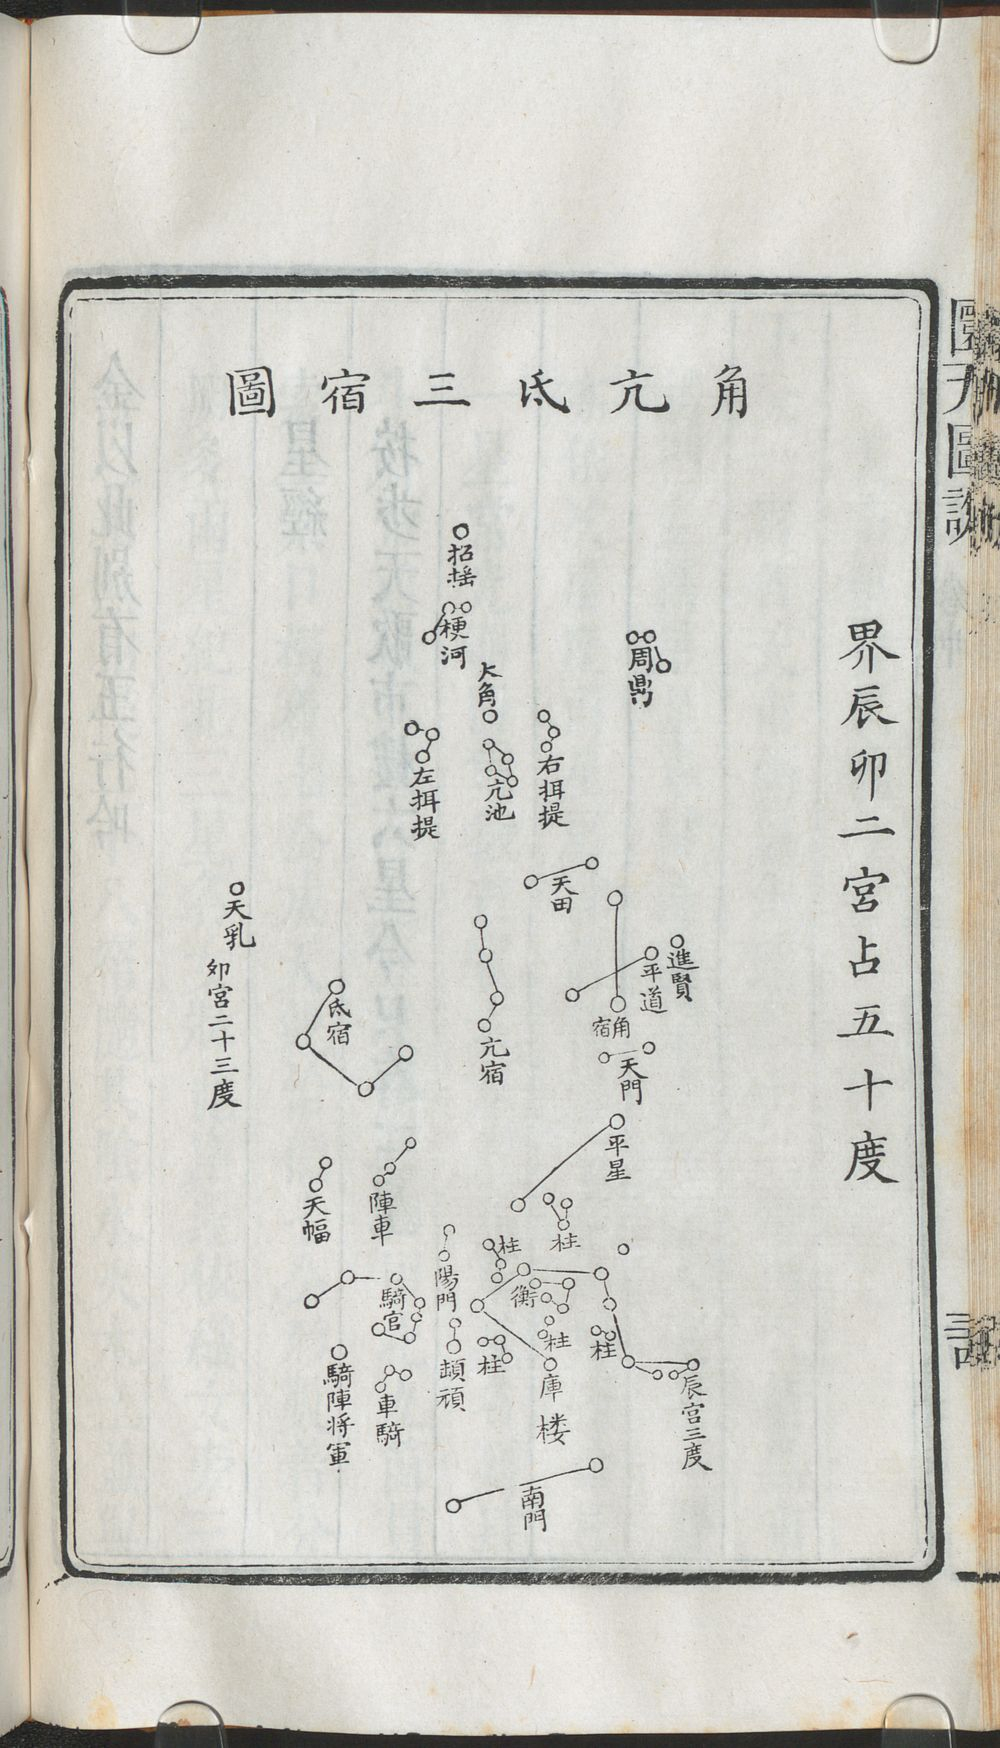 角亢氐三宿圖
界辰卯二宮占五十度
招搖
梗河
大角
周鼎
左摄提
亢池
右摄提
天田
天乳
卯宮二十三度
氐宿
亢宿
平道
進賢
角宿
天門
平星
天幅
陣車
陽門
柱
柱
衡
騎官
柱
柱
柱
頡頏
庫楼
辰宮三度
騎陣将軍
車騎
南門